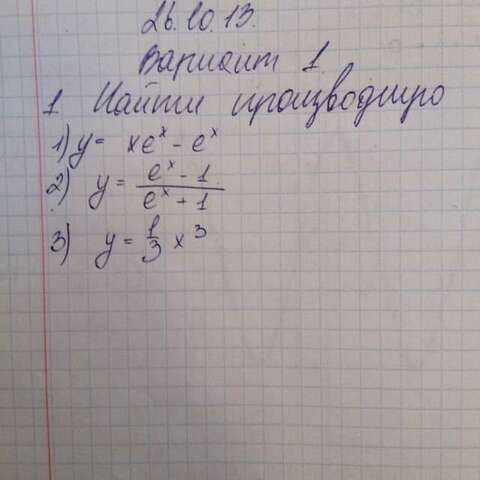 26.10.13.
Вариант 1
1 Найти производную
1) y = xeˣ - eˣ
2) y = (eˣ - 1)/(eˣ + 1)
3) y = 1/3 x³